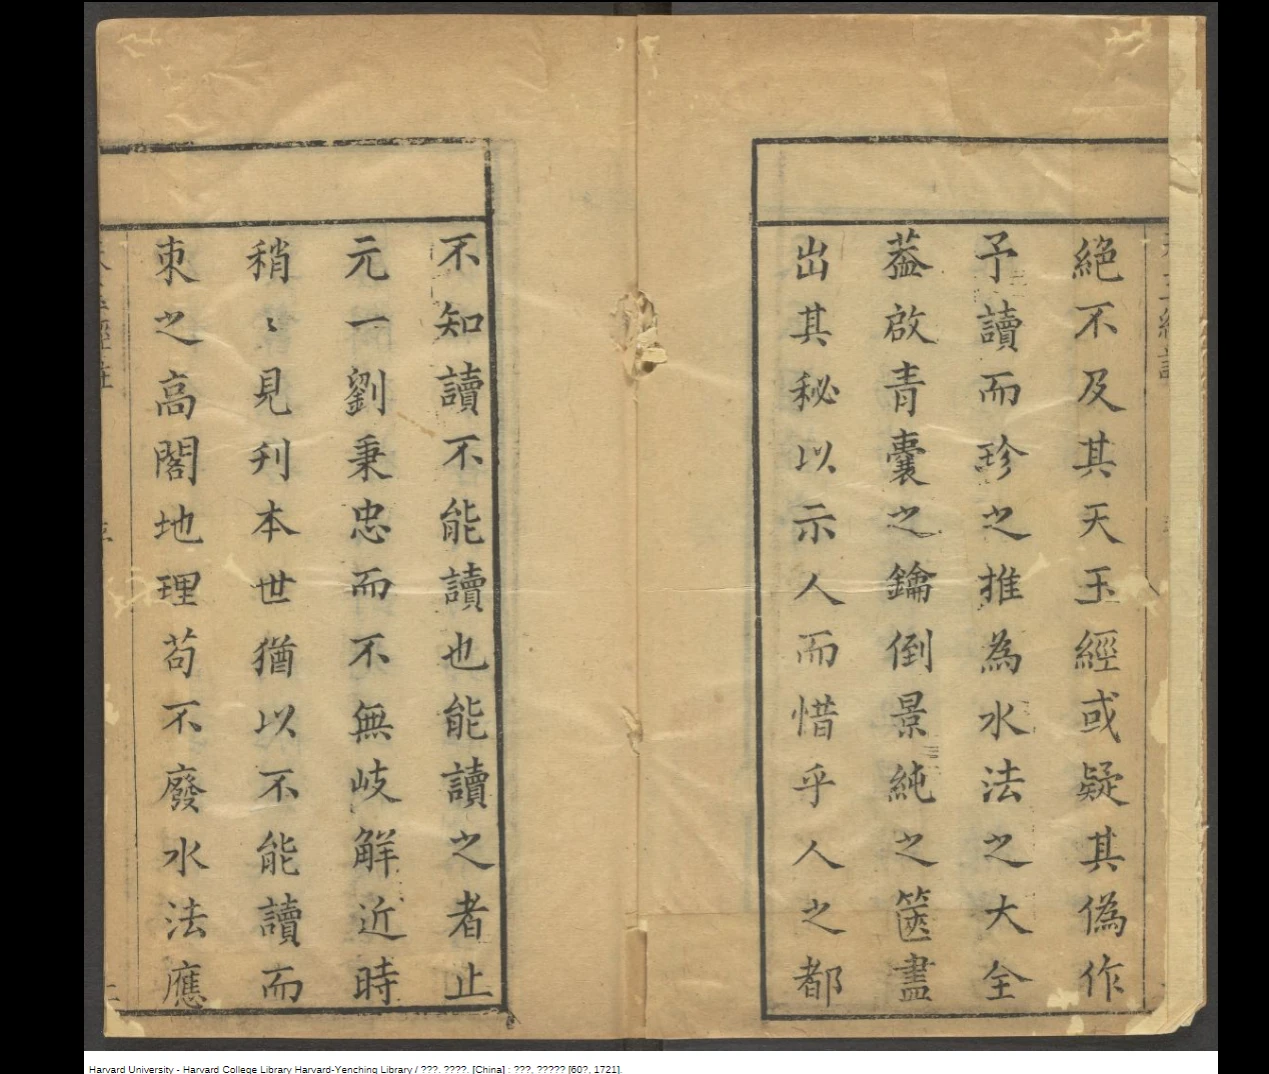 絶不及其天玉經或疑其偽作
予讀而珍之推為水法之大全
葢啟青囊之鑰倒景純之篋盡
出其秘以示人而惜乎人之都
不知讀不能讀也能讀之者止
元一劉秉忠而不無岐解近時
稍〻見刋本世猶以不能讀而
束之高閣地理苟不廢水法應
Harvard University - Harvard College Library Harvard-Yenching Library / ???. ????. [China] : ???, ????? [60?, 1721].